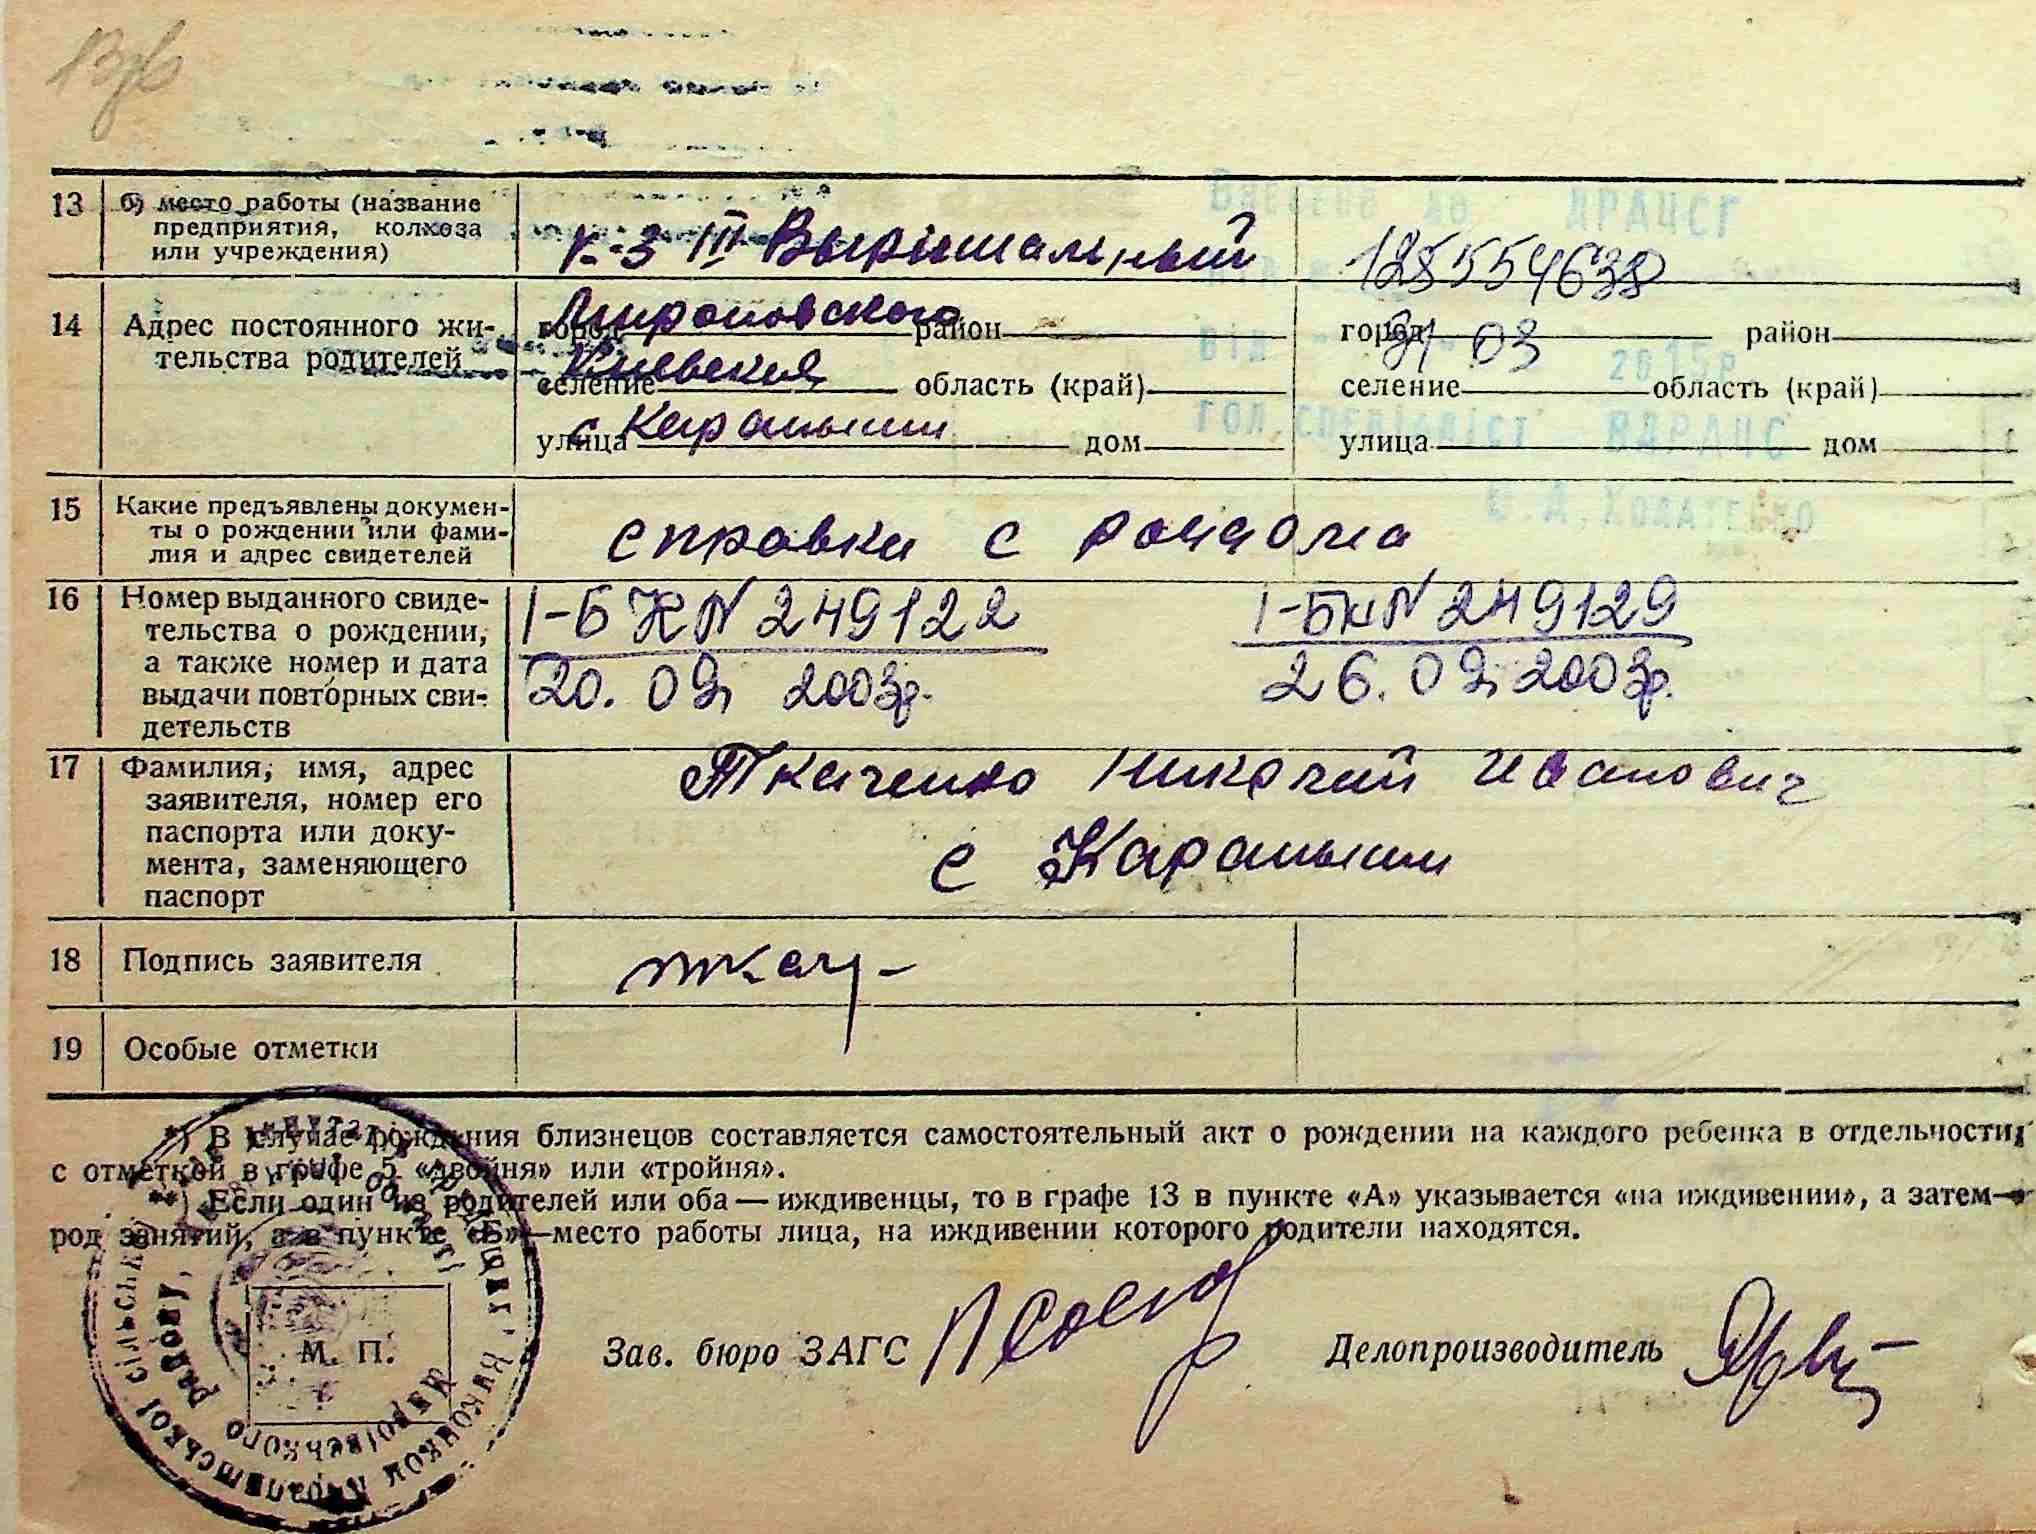 13 б) место работы (название
предприятия, колхоза
или учреждения)
к-з III Вырішальный
128554638
Внесено до ДРАЦСГ
14 Адрес постоянного жи-
тельства родителей
город Мироновского район
город район
31 03
Від 2015р
селение Киевския область (край)
селение область (край)
улица с Карапыши дом
улица дом
гол.спеціаліст ВДРАЦС
15 Какие предъявлены докумен-
ты о рождении или фами-
лия и адрес свидетелей
справка с роддома
16 Номер выданного свиде-
тельства о рождении,
а также номер и дата
выдачи повторных сви-
детельств
I-БК № 249122
20. 02 2003р.
I-БК № 249129
26. 02 2003р.
17 Фамилия, имя, адрес
заявителя, номер его
паспорта или доку-
мента, заменяющего
паспорт
Ткаченко Николай Иванович
с Карапыши
18 Подпись заявителя
ткач-
19 Особые отметки
*) В случае рождения близнецов составляется самостоятельный акт о рождении на каждого ребенка в отдельности,
с отметкой в графе 5 «двойня» или «тройня».
**) Если один из родителей или оба — иждивенцы, то в графе 13 в пункте «А» указывается «на иждивении», а затем—
род занятий, а в пункте «Б»—место работы лица, на иждивении которого родители находятся.
М. П.
Зав. бюро ЗАГС
Делопроизводитель